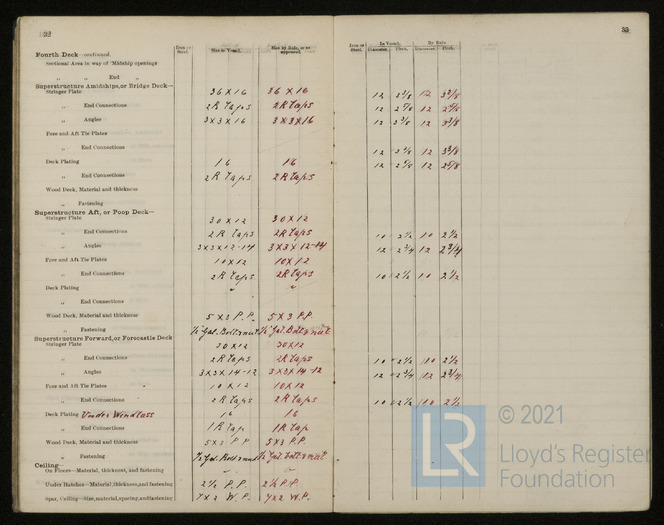 32
Iron or Steel.
Size in Vessel.
Size by Rule, or as approved.
Fourth Deck—continued.
Sectional Area in way of 'Midship openings
„ „ End „
Superstructure Amidships, or Bridge Deck—
Stringer Plate 36 x 16 36 x 16
„ End Connections 2 R Laps 2 R Laps
„ Angles 3 x 3 x 16 3 x 3 x 16
Fore and Aft Tie Plates
„ End Connections
Deck Plating 16 16
„ End Connections 2 R Laps 2 R Laps
Wood Deck, Material and thickness
„ Fastening
Superstructure Aft, or Poop Deck—
Stringer Plate 30 x 12 30 x 12
„ End Connections 2 R Laps 2 R Laps
„ Angles 3 x 3 x 12-14 3 x 3 x 12-14
Fore and Aft Tie Plates 10 x 12 10 x 12
„ End Connections 2 R Laps 2 R Laps
Deck Plating „ „
„ End Connections
Wood Deck, Material and thickness 5 x 3 P.P. 5 x 3 P.P.
„ Fastening
Superstructure Forward, or Forecastle Deck
Stringer Plate 30 x 12 30 x 12
„ End Connections 2 R Laps 2 R Laps
„ Angles 3 x 3 x 14-12 3 x 3 x 14-12
Fore and Aft Tie Plates 10 x 12 10 x 12
„ End Connections 2 R Laps 2 R Laps
Deck Plating Under Windlass 16 16
„ End Connections 1 R Lap 1 R Lap
Wood Deck, Material and thickness 5 x 3 P P 5 x 3 P.P.
„ Fastening
Ceiling—
On Floors—Material, thickness, and fastening
Under Hatches—Material, thickness, and fastening 2½ P.P. 2½ P.P.
Spar, Ceiling—Size, material, spacing, and fastening 7 x 2 W.P. 7 x 2 W.P.
33
Iron or Steel.
In Vessel.
By Rule
Diameter. Pitch. Diameter. Pitch.
12 3⅜ 12 3⅜
12 2⅝ 12 2⅝
12 3⅜ 12 3⅜
12 3⅜ 12 3⅜
12 2⅝ 12 2⅝
10 2½ 10 2½
12 2¾ 12 2¾
10 2½ 10 2½
10 2½ 10 2½
12 2¾ 12 2¾
10 2½ 10 2½
LR
© 2021
Lloyd's Register
Foundation